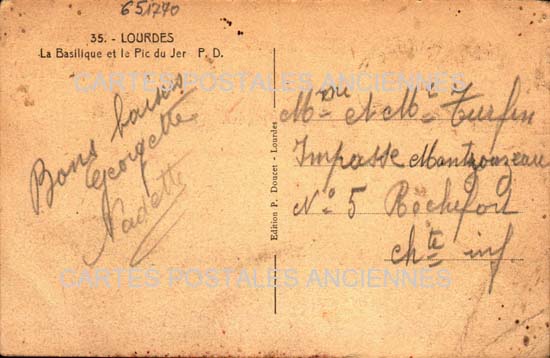 651740
35. - LOURDES
La Basilique et le Pic du Jer P. D.
CARTES POSTALES ANCIENNES
Bons baisers
Georgette
Nadette
Edition P. Doucet - Lourdes
Mr et Me Turfin
Impasse
N° 5 Rochefort
chte inf
CARTES POSTALES ANCIENNES